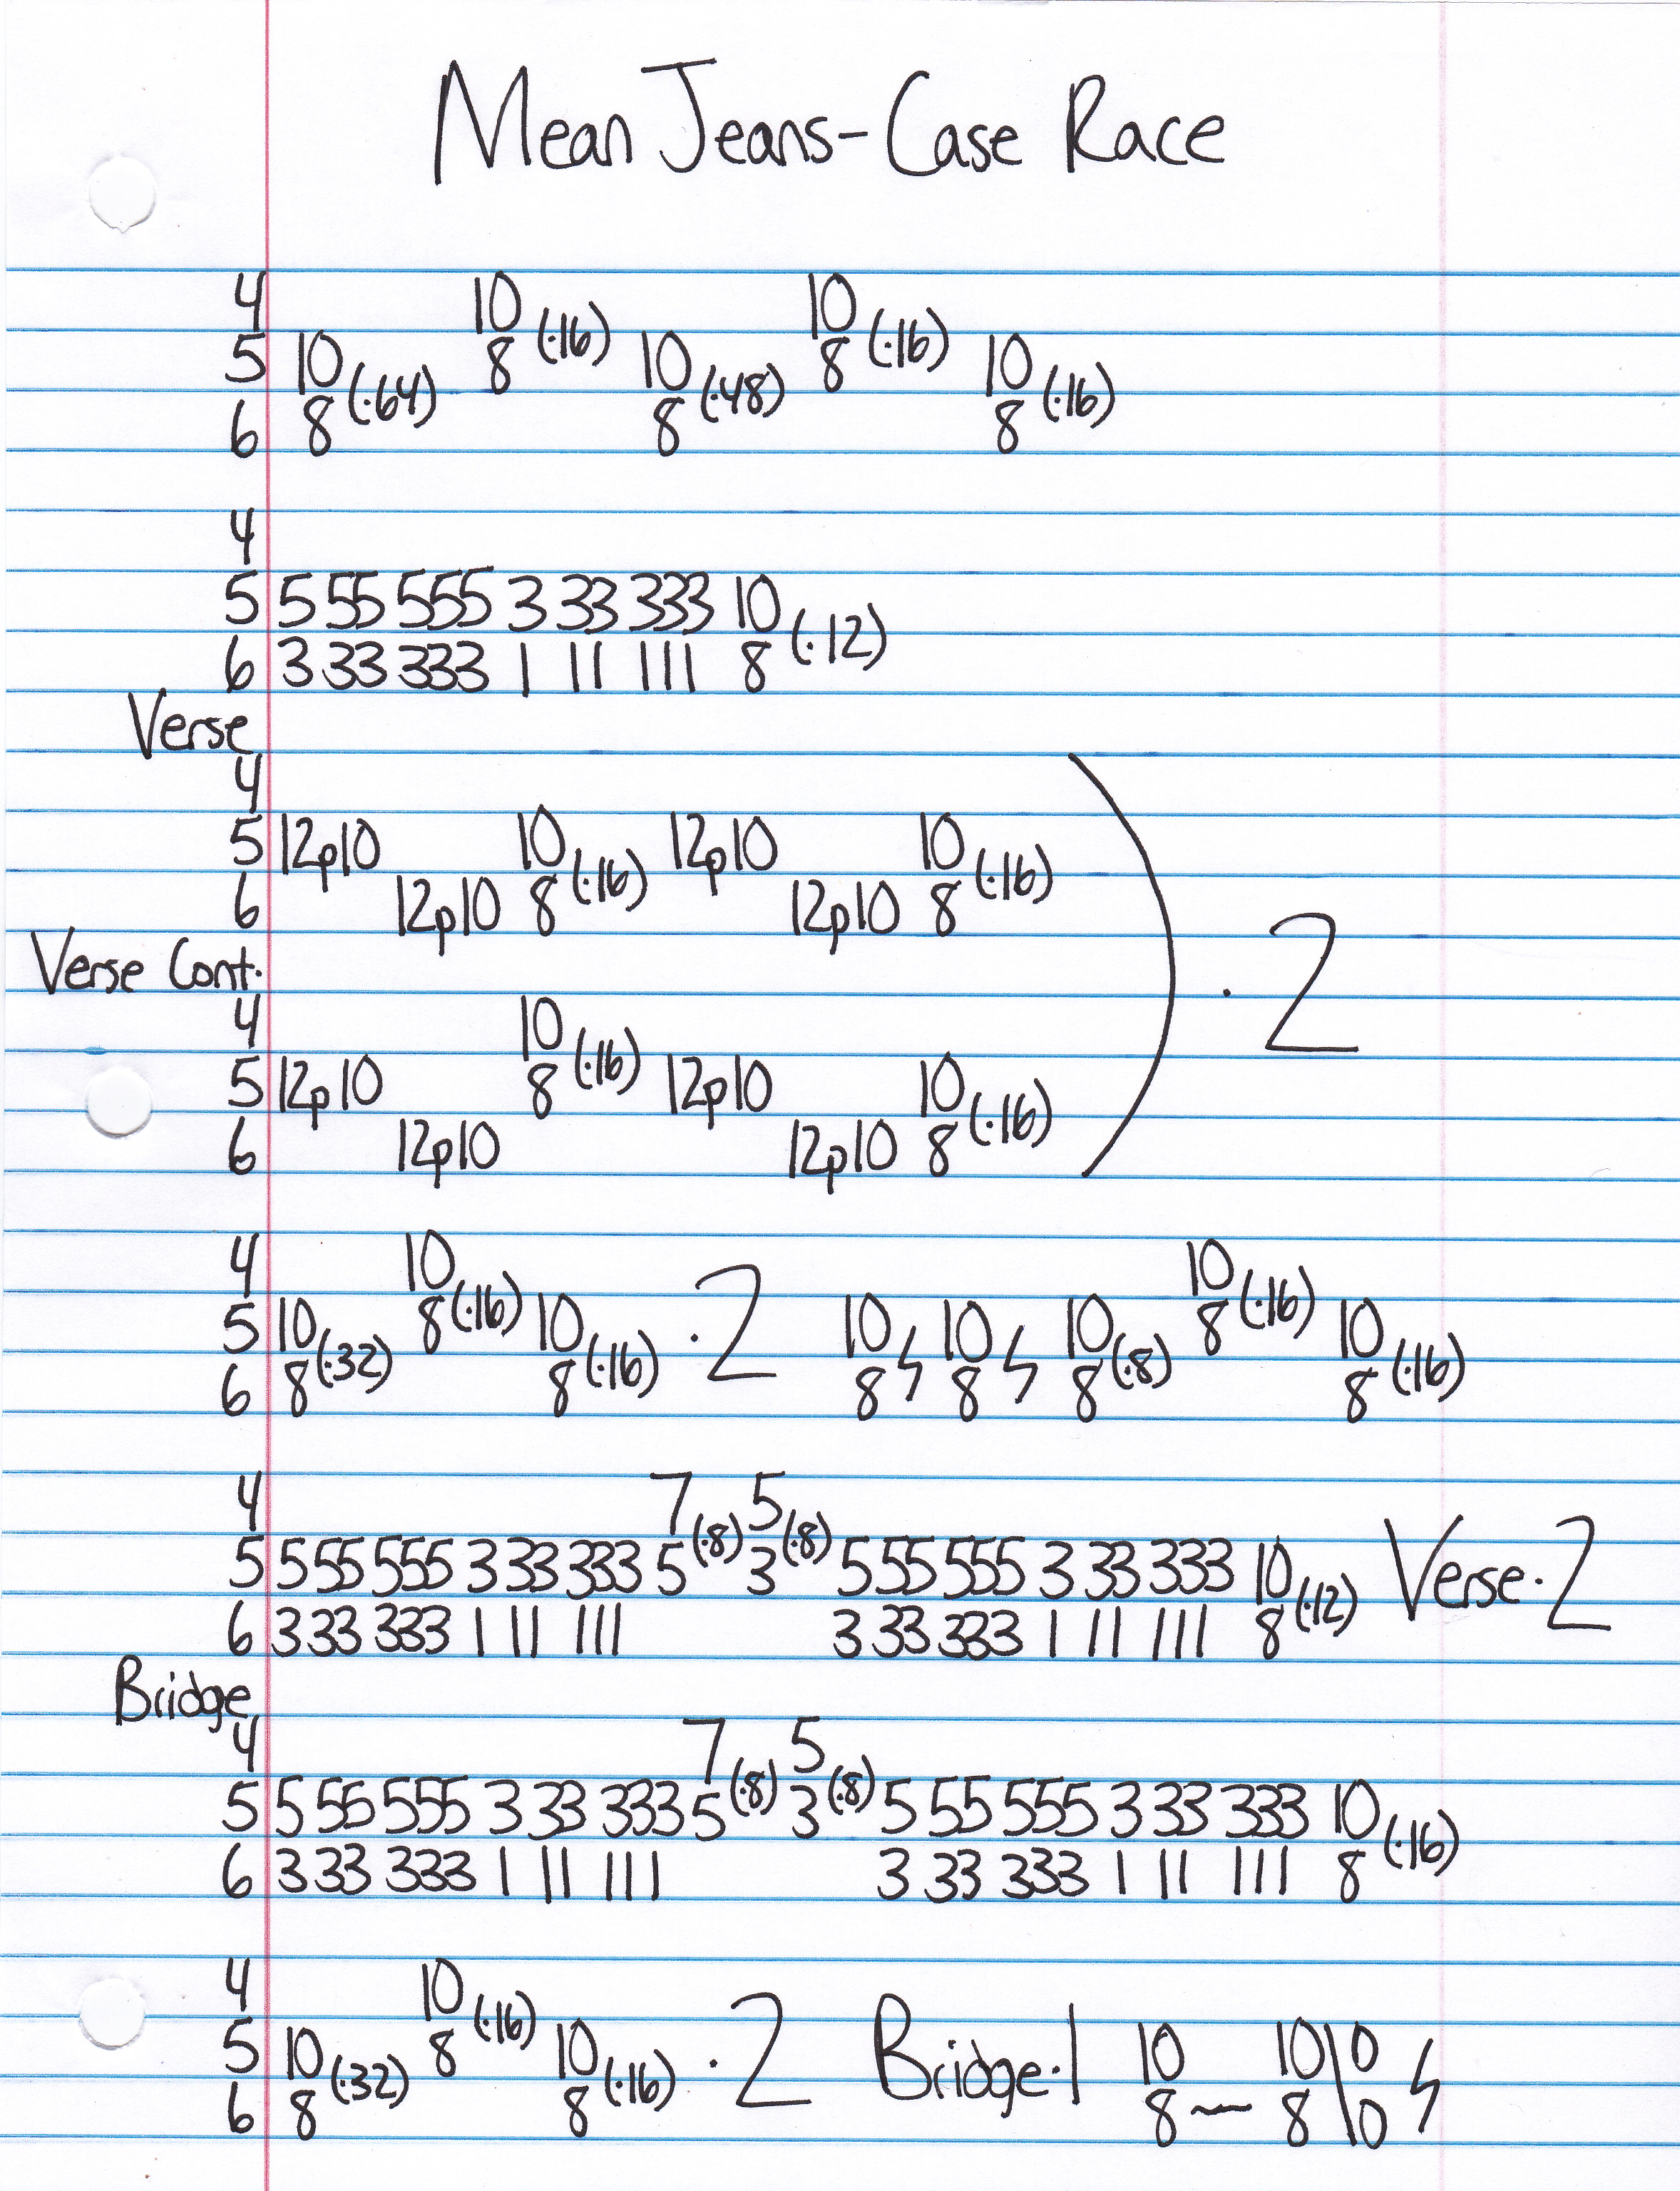 Mean Jeans-Case Race
4 10 10
5 10 (·64) 8 (·16) 10 (·48) 8 (·16) 10 (·16)
6 8 8 8
4
5 5 55 555 3 33 333 10 (·12)
6 3 33 333 1 11 111 8
Verse
4
5 12p10 10 (·16) 12p10 10 (·16)
6 12p10 8 12p10 8
· 2
Verse Cont.
4 10
5 12p10 8 (·16) 12p10 10 (·16)
6 12p10 12p10 8
4 10 10
5 10 (·32) 8 (·16) 10 (·16) · 2 10 ϟ 10 ϟ 10 (·8) 8 (·16) 10 (·16)
6 8 8 8 8 8 8
4 7 5
5 5 55 555 3 33 333 5 (·8) 3 (·8) 5 55 555 3 33 333 10 (·12) Verse·2
6 3 33 333 1 11 111 3 33 333 1 11 111 8
Bridge
4 7 5
5 5 55 555 3 33 333 5 (·8) 3 (·8) 5 55 555 3 33 333 10 (·16)
6 3 33 333 1 11 111 3 33 333 1 11 111 8
4 10
5 10 (·32) 8 (·16) 10 (·16) · 2 Bridge·1 10 10\0 ϟ
6 8 8 8~8\0